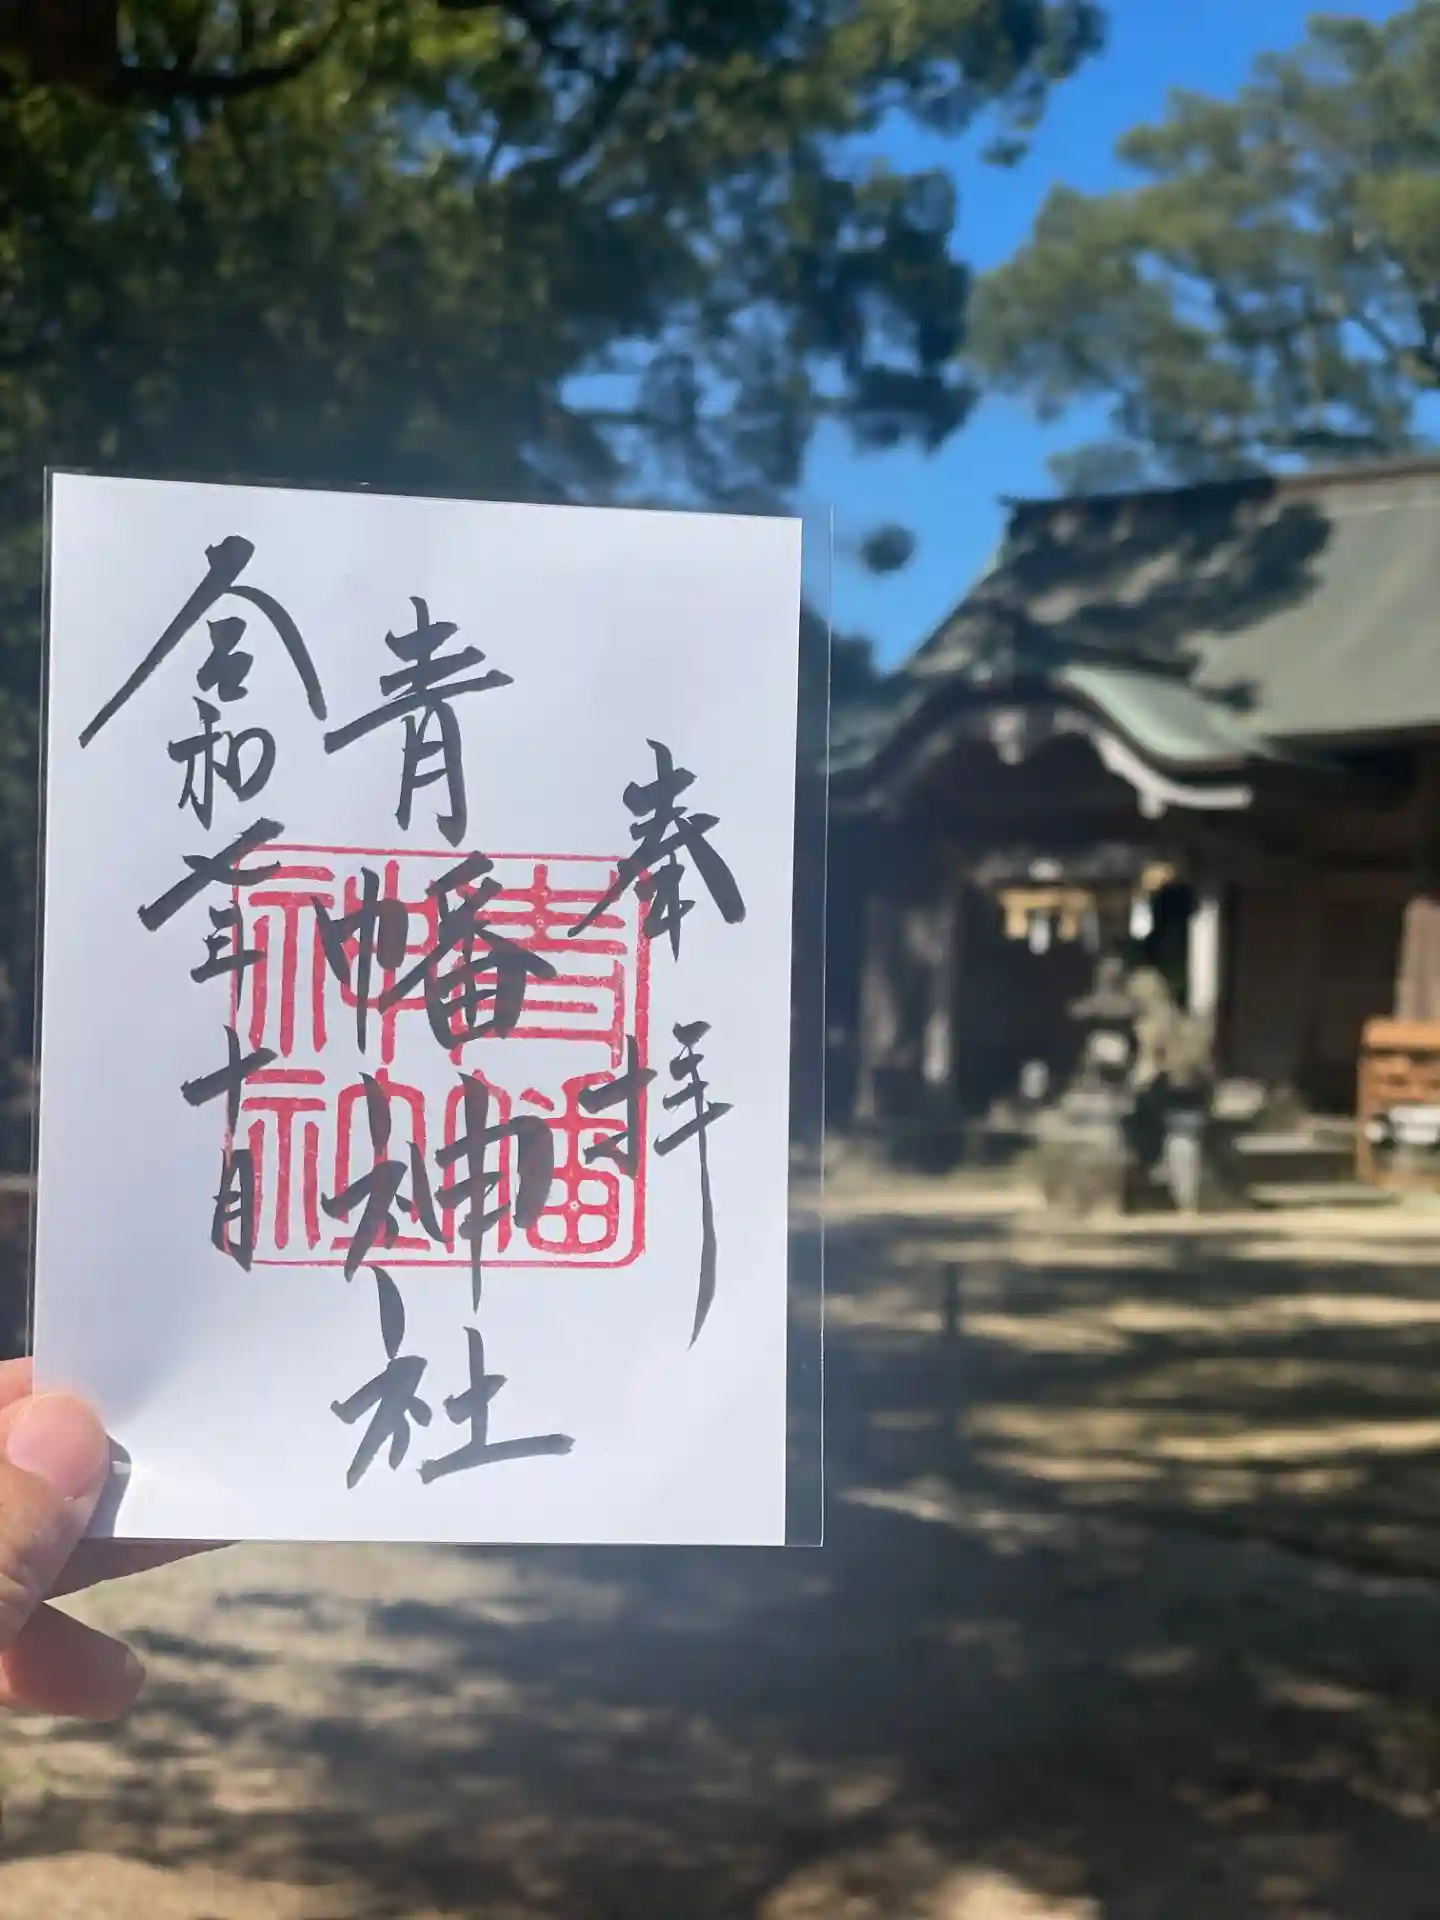 奉拝
青幡神社
令和七年十月
青幡
神社